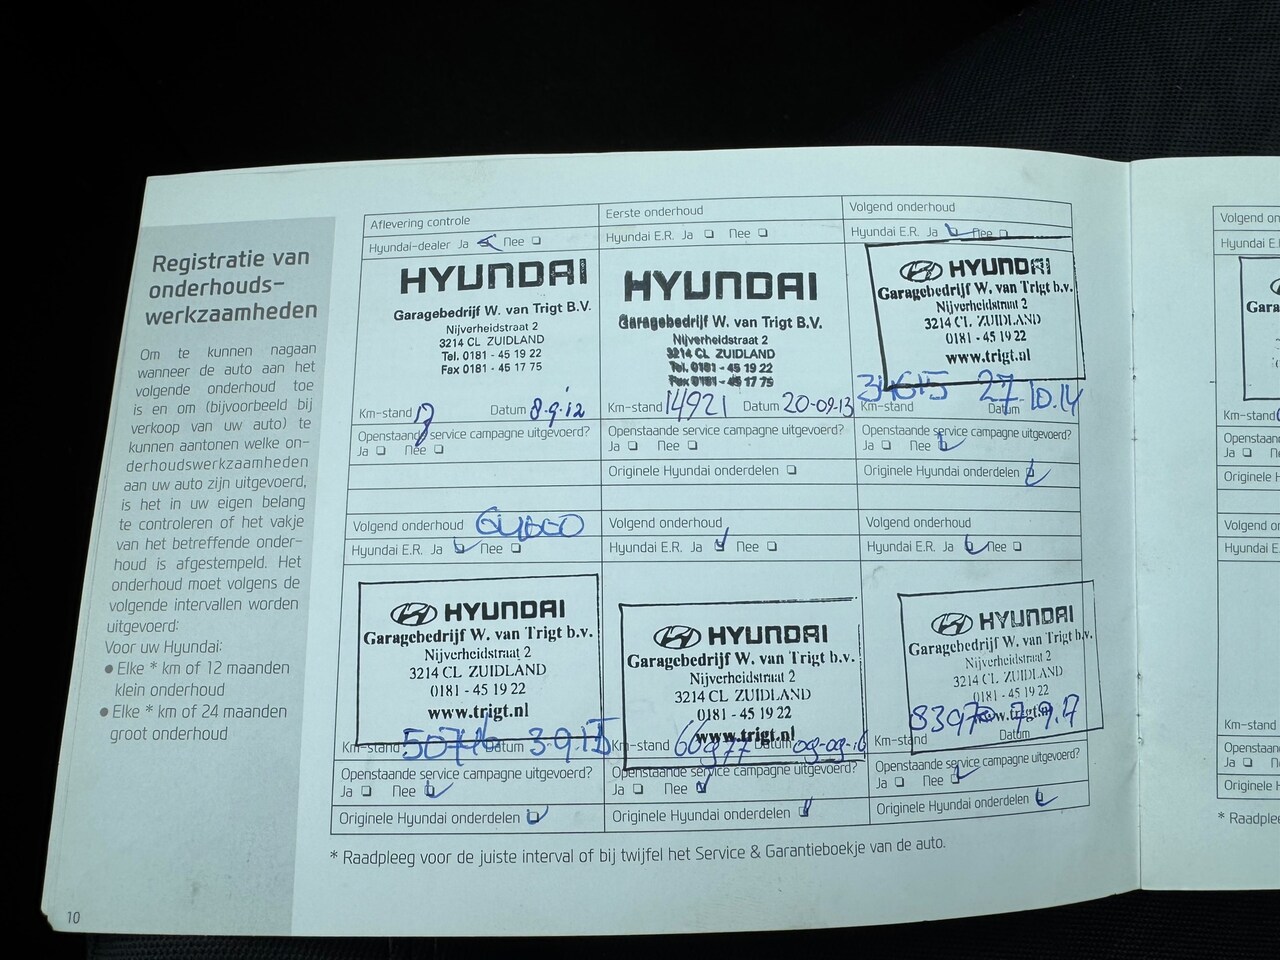 Registratie van
onderhouds-
werkzaamheden
Om te kunnen nagaan
wanneer de auto aan het
volgende onderhoud toe
is en om (bijvoorbeeld bij
verkoop van uw auto) te
kunnen aantonen welke on-
derhoudswerkzaamheden
aan uw auto zijn uitgevoerd,
is het in uw eigen belang
te controleren of het vakje
van het betreffende onder-
houd is afgestempeld. Het
onderhoud moet volgens de
volgende intervallen worden
uitgevoerd:
Voor uw Hyundai:
● Elke * km of 12 maanden
klein onderhoud
● Elke * km of 24 maanden
groot onderhoud
10
Aflevering controle
Hyundai-dealer Ja Nee
HYUNDAI
Garagebedrijf W. van Trigt B.V.
Nijverheidstraat 2
3214 CL ZUIDLAND
Tel. 0181 - 45 19 22
Fax 0181 - 45 17 75
Km-stand Datum 8-9-12
Openstaande service campagne uitgevoerd?
Ja Nee
Eerste onderhoud
Hyundai E.R. Ja Nee
HYUNDAI
Garagebedrijf W. van Trigt B.V.
Nijverheidstraat 2
3214 CL ZUIDLAND
Tel. 0181 - 45 19 22
Fax 0181 - 45 17 75
Km-stand 14921 Datum 20-09-13
Openstaande service campagne uitgevoerd?
Ja Nee
Originele Hyundai onderdelen
Volgend onderhoud
Hyundai E.R. Ja Nee
HYUNDAI
Garagebedrijf W. van Trigt b.v.
Nijverheidstraat 2
3214 CL ZUIDLAND
0181 - 45 19 22
www.trigt.nl
Km-stand 31615 Datum 27.10.14
Openstaande service campagne uitgevoerd?
Ja Nee
Originele Hyundai onderdelen
Volgend onderhoud
Hyundai E.R. Ja Nee
HYUNDAI
Garagebedrijf W. van Trigt b.v.
Nijverheidstraat 2
3214 CL ZUIDLAND
0181 - 45 19 22
www.trigt.nl
Km-stand 50746 Datum 3-9-15
Openstaande service campagne uitgevoerd?
Ja Nee
Originele Hyundai onderdelen
Volgend onderhoud
Hyundai E.R. Ja Nee
HYUNDAI
Garagebedrijf W. van Trigt b.v.
Nijverheidstraat 2
3214 CL ZUIDLAND
0181 - 45 19 22
www.trigt.nl
Km-stand 66977 Datum 09-09-16
Openstaande service campagne uitgevoerd?
Ja Nee
Originele Hyundai onderdelen
Volgend onderhoud
Hyundai E.R. Ja Nee
HYUNDAI
Garagebedrijf W. van Trigt b.v.
Nijverheidstraat 2
3214 CL ZUIDLAND
0181 - 45 19 22
www.trigt.nl
Km-stand 83970 Datum 7.9.17
Openstaande service campagne uitgevoerd?
Ja Nee
Originele Hyundai onderdelen
* Raadpleeg voor de juiste interval of bij twijfel het Service & Garantieboekje van de auto.
Volgend
Hyundai E.
Km-stand
Openstaand
Ja
Originele
Volgend
Hyundai E
Km-stand
Openstaan
Ja
Originele
* Raadplee